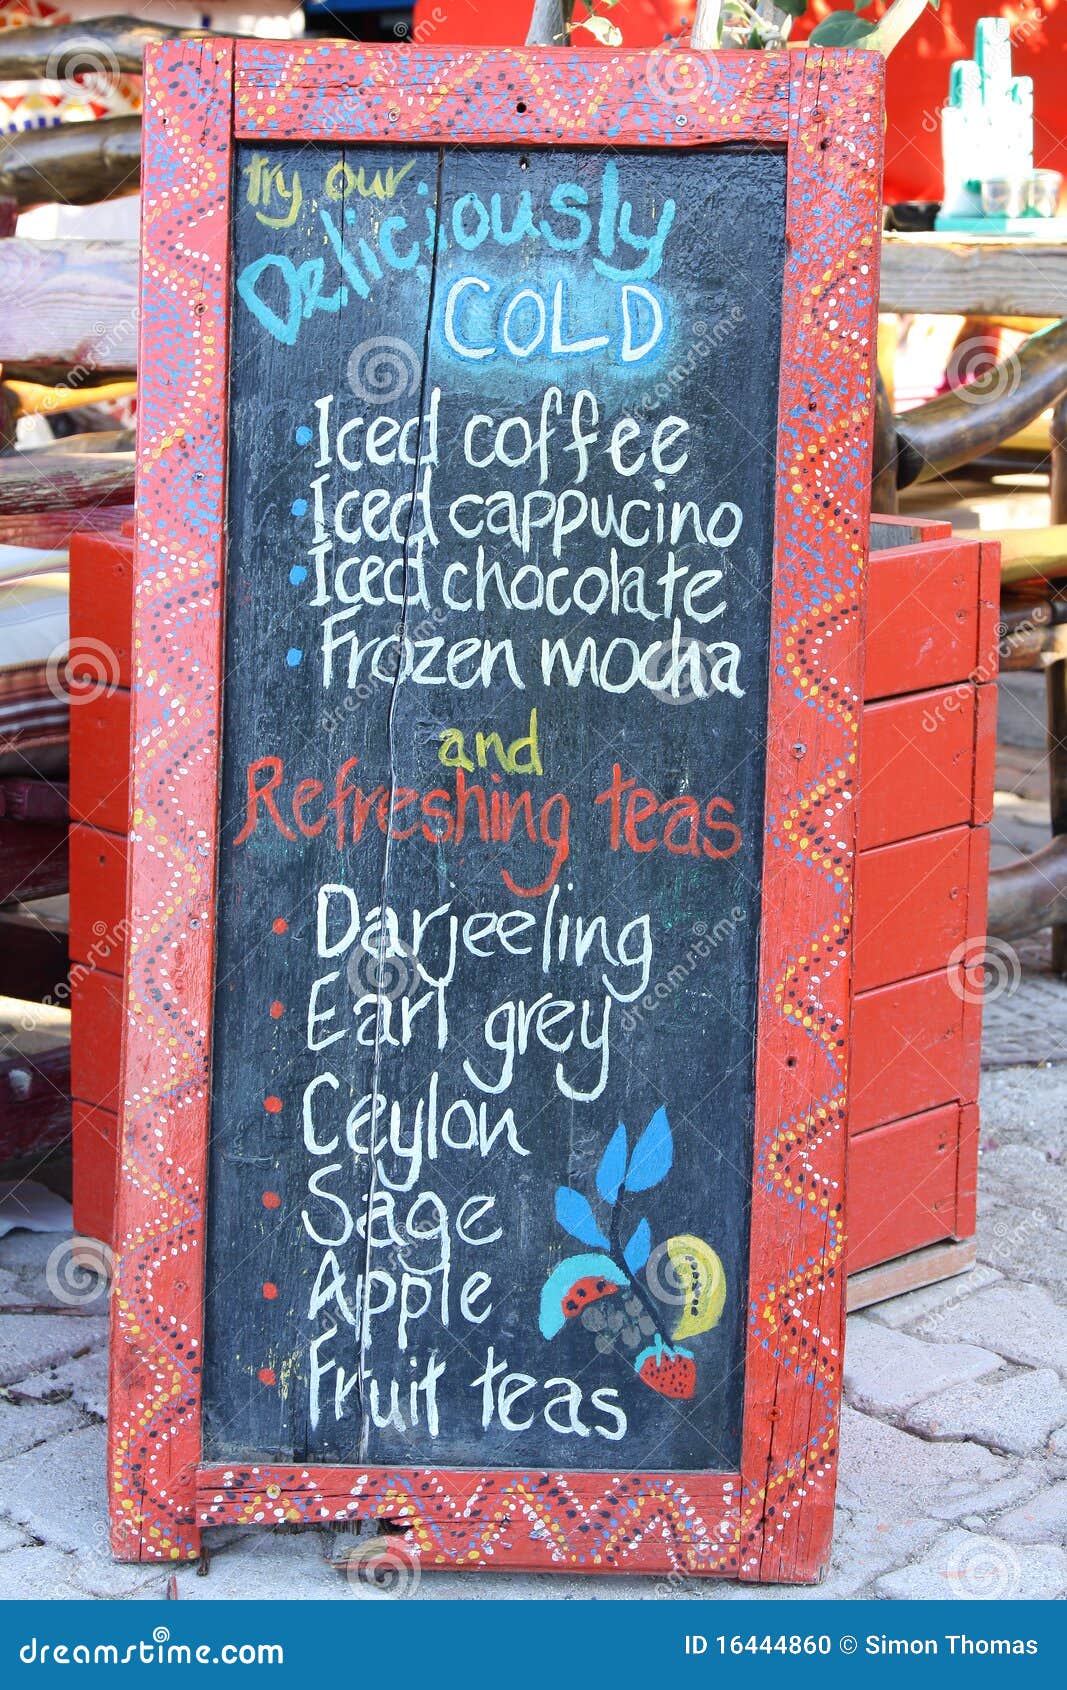 try our
Deliciously
COLD
Iced coffee
Iced cappucino
Iced chocolate
Frozen mocha
and
Refreshing teas
Darjeeling
Earl grey
Ceylon
Sage
Apple
Fruit teas
dreamstime.com
ID 16444860 © Simon Thomas